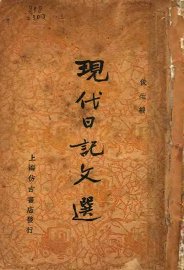 現代日記文選
上海仿古書店發行